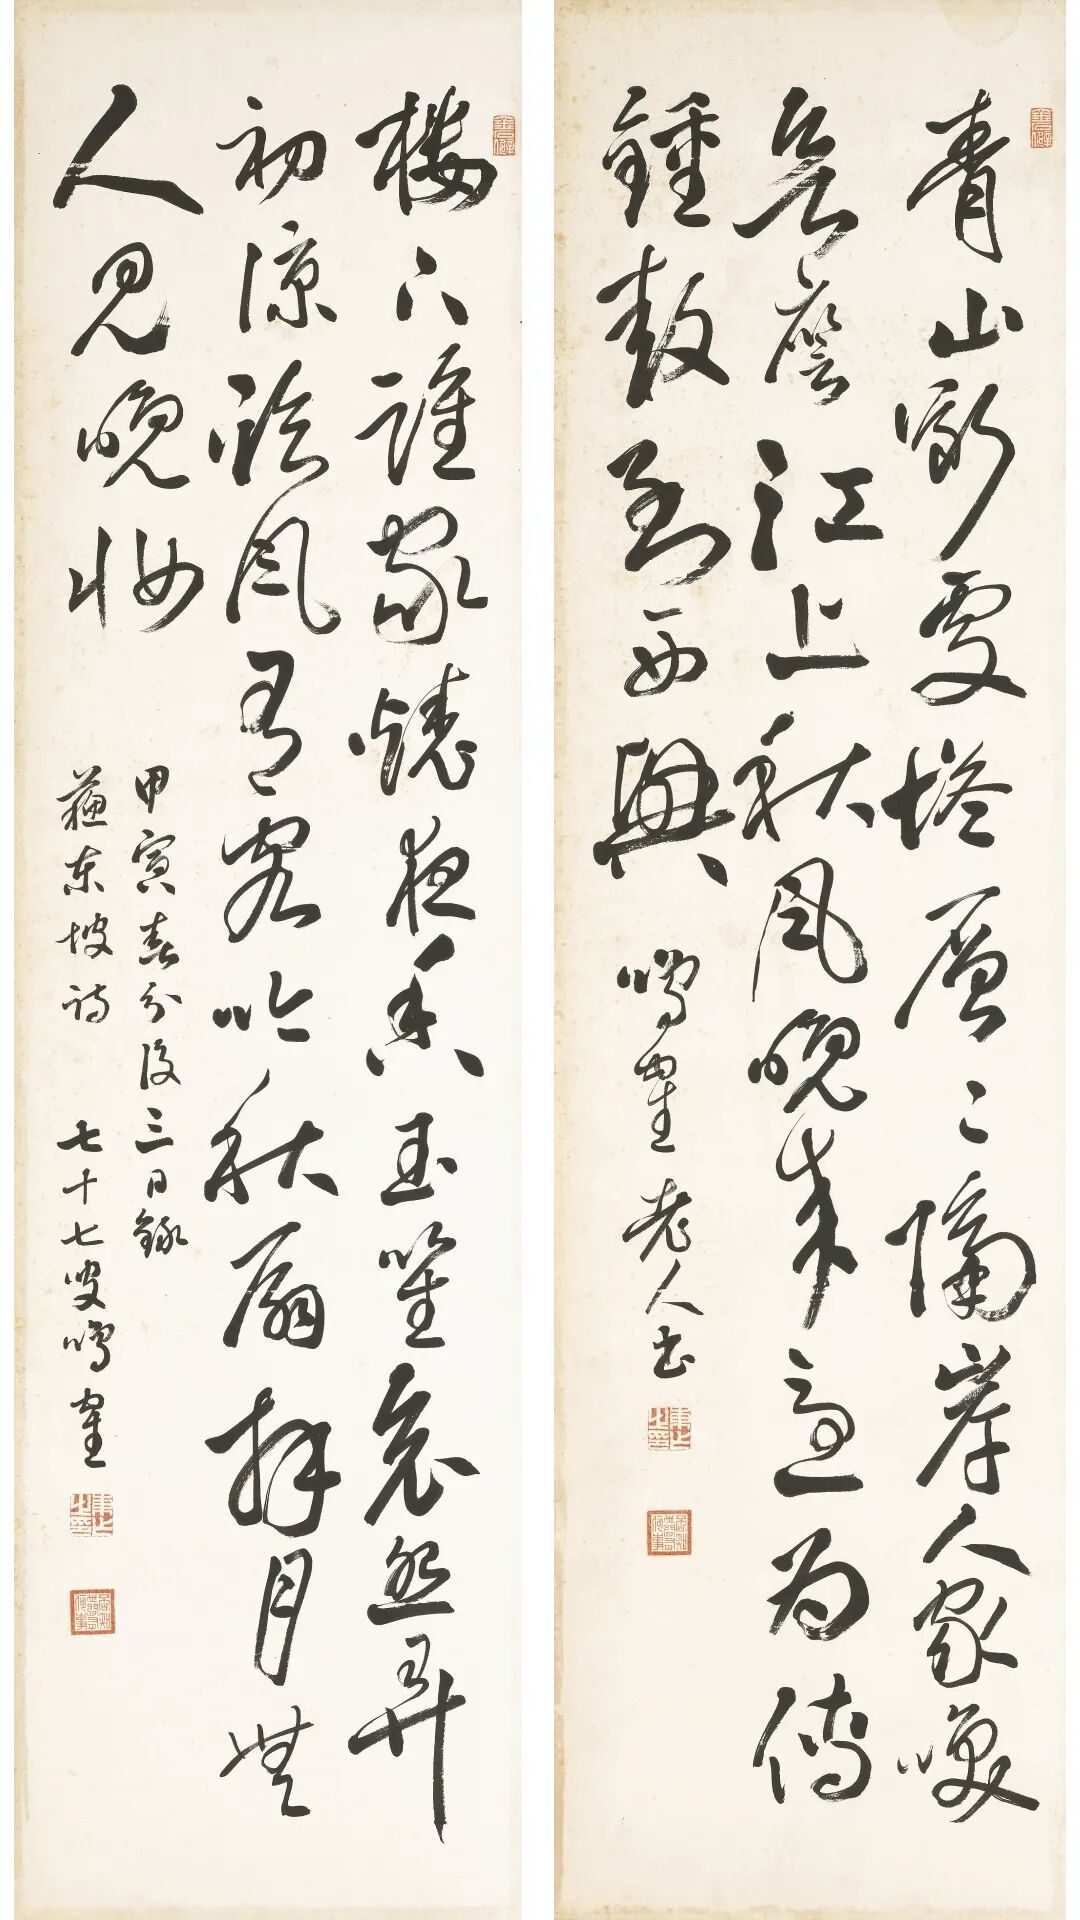 青山斷處塔層〻隔岸人家喚
欲譍江上秋風晚來急為傳
鍾鼓到西興
鳴鶴老人書
樓下誰家燒夜香玉笙哀怨弄
初涼臨風有客吟秋扇拜月無
人見晚妝
甲寅春分後三日錄
蘇東坡詩 七十七叟鳴鶴